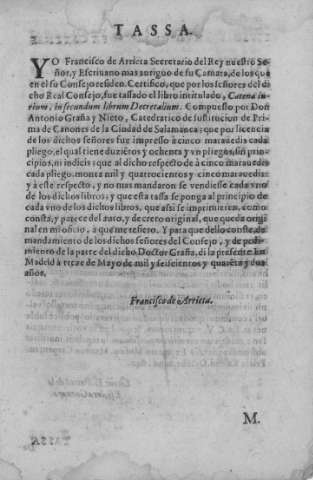 TASSA.
YO Francisco de Arrieta Secretario del Rey nuestro Se-
ñor, y Escrivano mas antiguo de su Camara, de los que
en el su Consejo residen. Certifico, que por los señores del di-
cho Real Consejo, fue tassado el libro intitulado, Catena iu-
rium, in secundum librum Decretalium. Compuesto por Don
Antonio Graña y Nieto, Catedratico de sustitucion de Pri-
ma de Canones de la Ciudad de Salamanca: que por licencia
de los dichos señores fue impresso à cinco maravedis cada
pliego, el qual tiene duzientos y ochenta y un pliegos, sin prin-
cipios, ni indices: que al dicho respecto de à cinco maravedis
cada pliego, monta mil y quatrocientos y cinco maravedis:
y à este respecto, y no mas mandaron se vendiesse cada uno
de los dichos libros; y que esta tassa se ponga al principio de
cada uno de los dichos libros, que assi se imprimiere, como
consta, y parece del auto, y decreto original, que queda origi-
nal en mi oficio, a que me refiero. Y para que dello conste, de
mandamiento de los dichos señores del Consejo, y de pedi-
miento de la parte del dicho Doctor Graña, di la presente en
Madrid à treze de Mayo de mil y seiscientos y quarẽta y dos
años.
Francisco de Arrieta.
M.